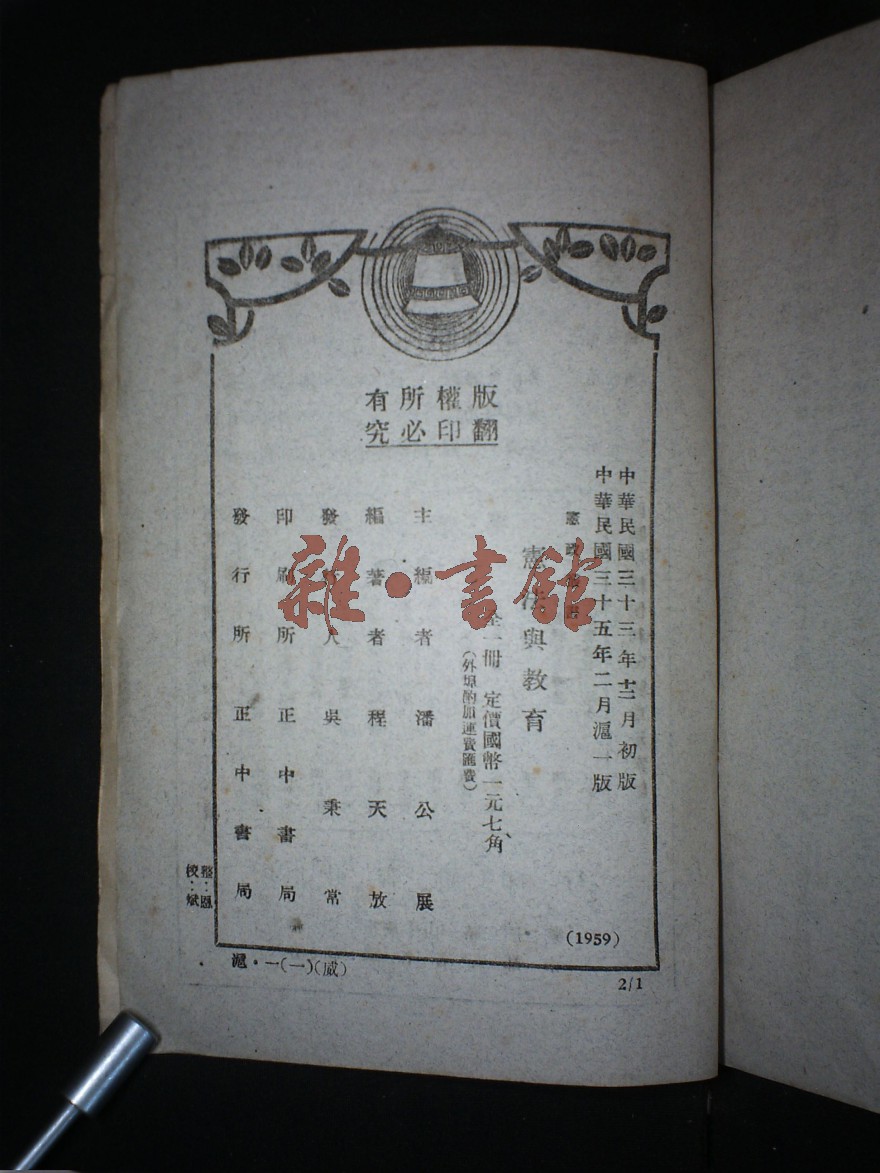 版權所有
翻印必究
中華民國三十三年十二月初版
中華民國三十五年二月滬一版
憲政
憲法與教育
全一冊 定價國幣一元七角
(外埠酌加運費匯費)
主編者 潘公展
編著者 程天放
發行人 吳秉常
印刷所 正中書局
發行所 正中書局
校:斌
(1959)
滬·一(一)(威)
2/1
雜·書館